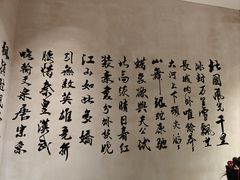 北國風光千里
冰封万里雪飘
長城内外唯餘莽
大河上下頓失滔
山舞銀蛇原馳
蠟象欲與天公試
比高須晴日看紅
裝素裹分外妖娆
江山如此多嬌
引無數英雄竞折
腰惜秦皇漢武
略輸文采唐宗宋